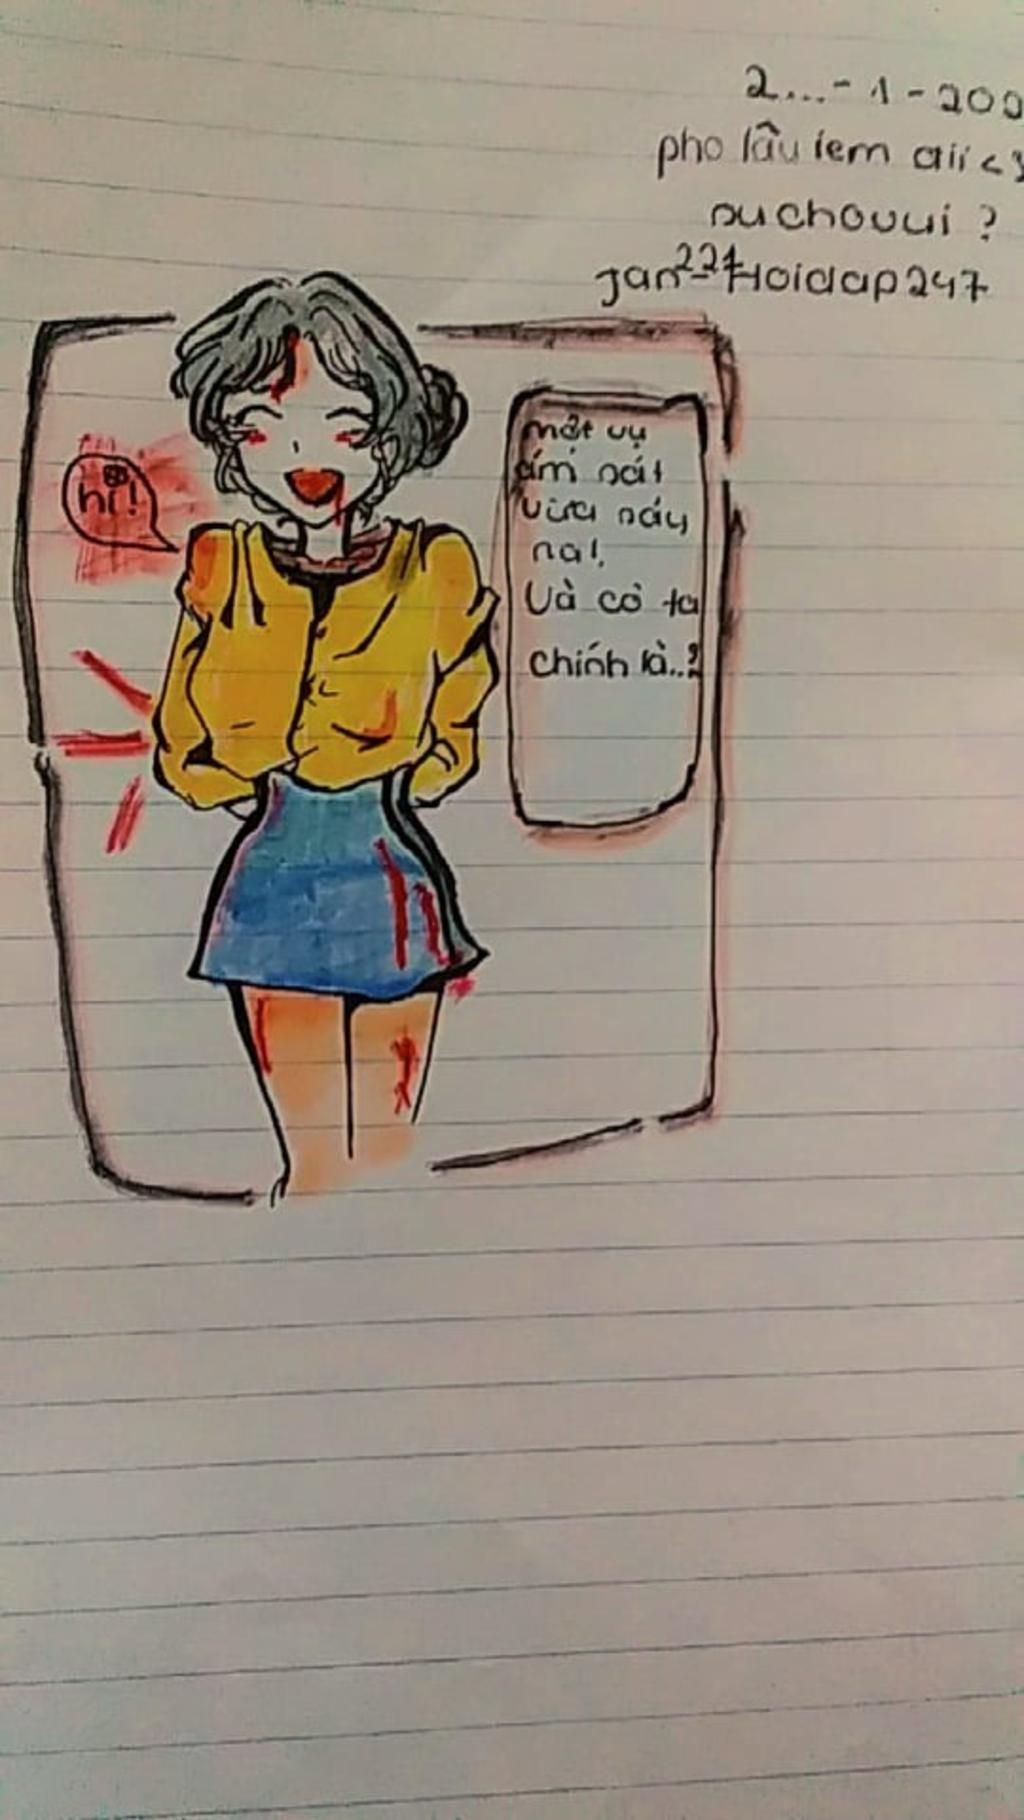 2...-1-202
pho lâu iem aii <3
su chouui ?
jan²²⁴-Hoidap247
hi!
một vụ
ám sát
vừa sáy
na!
Và cô ta
chính là..?